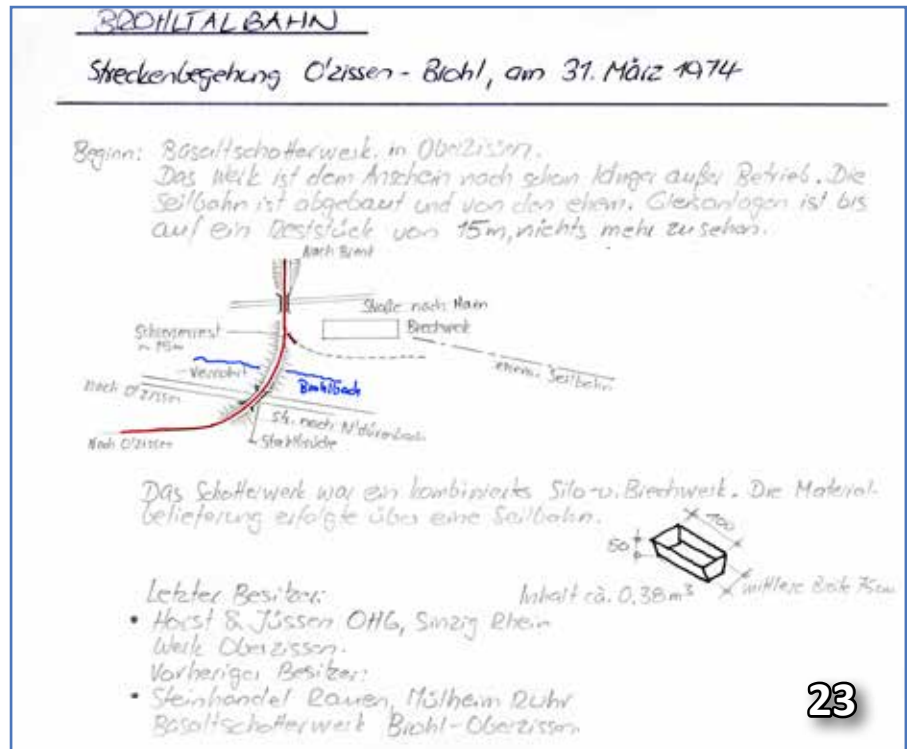 BROHLTALBAHN
Streckenbegehung O'zissen - Brohl, am 31. März 1974
Beginn: Basaltschotterwerk in Oberzissen.
Das Werk ist dem Anschein nach schon länger außer Betrieb. Die
Seilbahn ist abgebaut und von den ehem. Gleisanlagen ist bis
auf ein Reststück von 15m, nichts mehr zu sehen.
Nach Brohl
Straße nach
Schienenrest
~ 15m
Brechwerk
ehem. Seilbahn
Verrohrt
Brohlbach
Nach O'zissen
Str. nach N'dürenbach
Stahlbrücke
Nach O'zissen
Das Schotterwerk war ein kombiniertes Silo- u. Brechwerk. Die Material-
belieferung erfolgte über eine Seilbahn.
100
50
mittlere Breite 75cm
Inhalt ca. 0,38m³
Letzter Besitzer:
• Horst & Jüssen OHG, Sinzig Rhein
Werk Oberzissen.
Vorheriger Besitzer:
• Steinhandel Rauen, Mülheim Ruhr
Basaltschotterwerk Brohl-Oberzissen
23